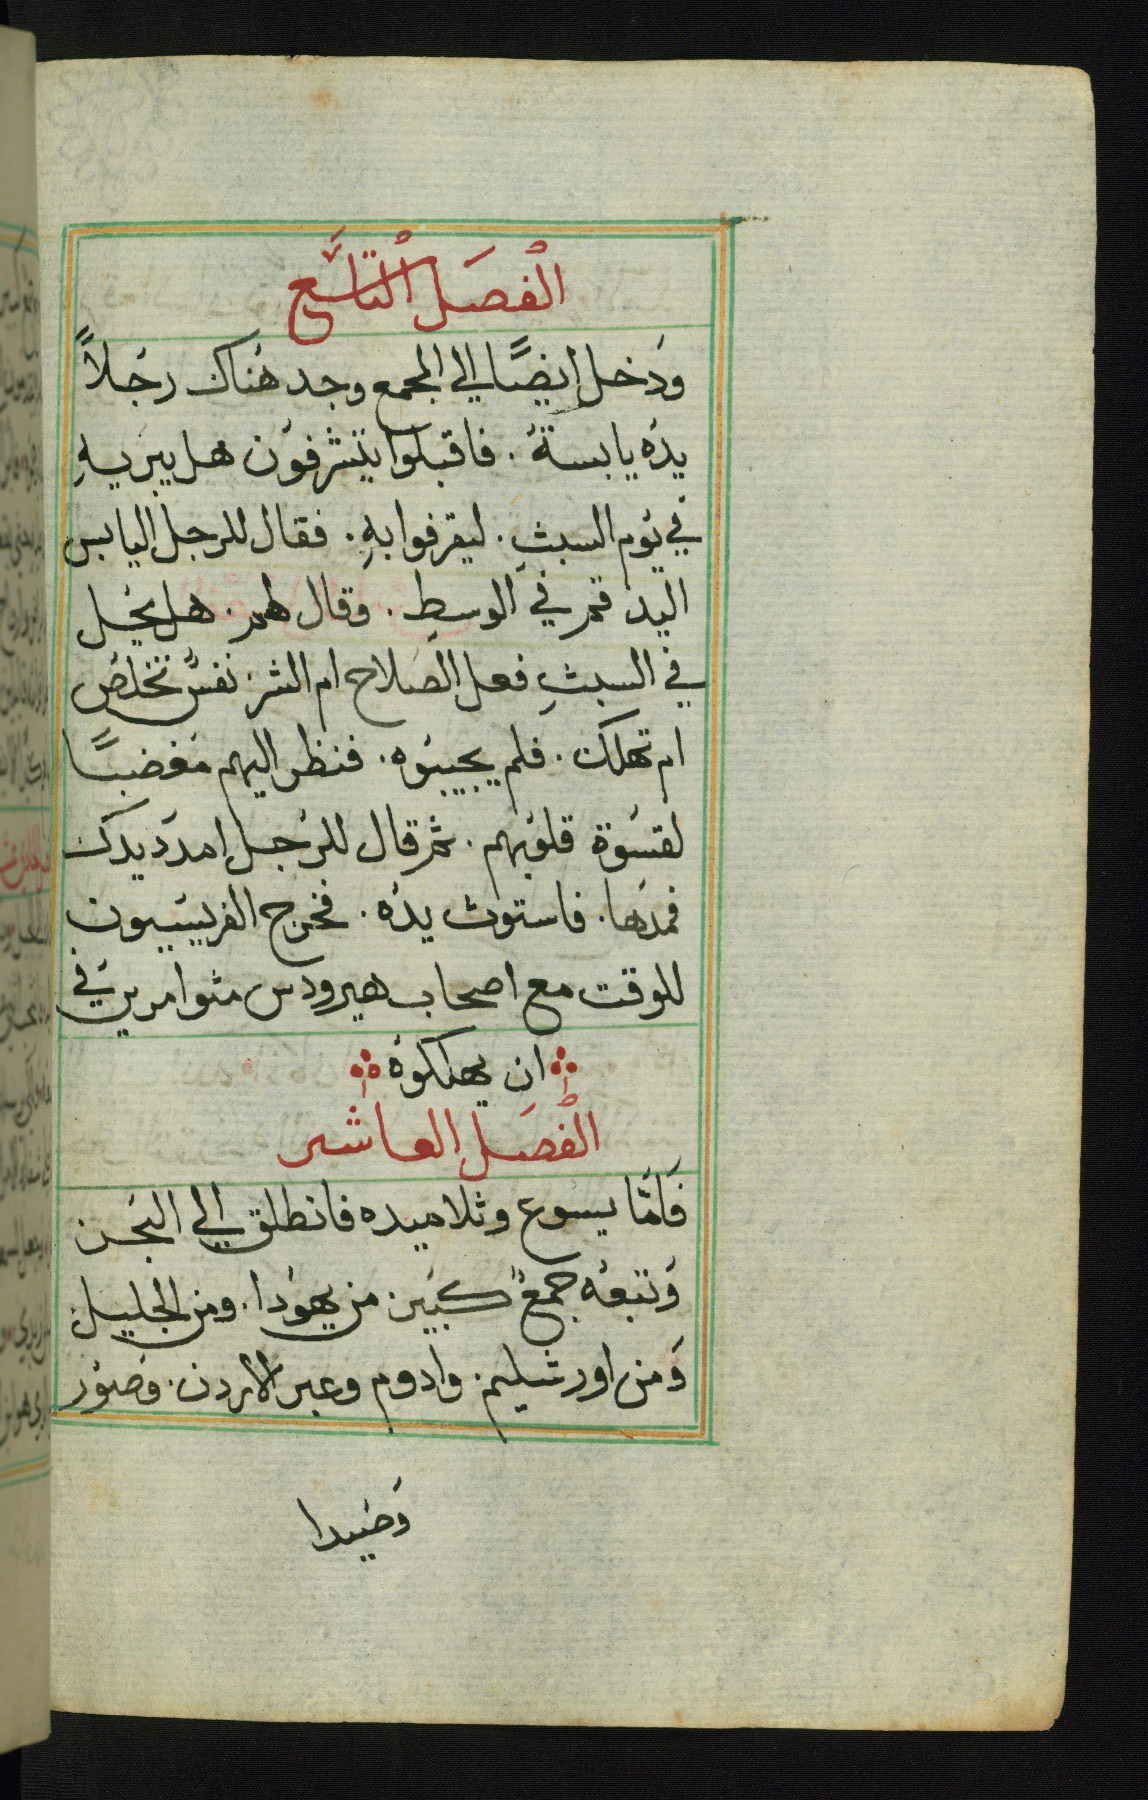 الْفصَل الْتاسَّع
وَدخل ايضًا الي المجمع وجد هُناك رجُلاً
يدُه يابسةُ . فاقبلوا يتشرفوُن هل يبريهِ
في يوُم السبتِ . ليقرفوا بهِ . فقال للرجل اليابس
اليد قمر في الوسطِ . وقال لهمر . هل يحُل
في السبتِ فعل الصَلاح ام الشر . نفسُ تخلصُ
ام تهلك . فلم يجيبوُه . فنظر اليهم مغضبًا
لقسوُة قلوُبهم . ثمر قال للرُجل امدَد يدك
فمدَها . فاستوت يدُه . فخرج الفريسَيون
للوقت مع اصحاب هيرودس متوامرين في
ان يهلكوهُ
الْفصَل العاشر
فَامَّا يسوع وتلاميده فانطلق الي البَحر
وَتبعُه جمعُ كبَير . من يهوُدا . ومن الجليل
وَمن اورشليم . وادوم وعبر الاردن . وصوُر
وَصَيدا